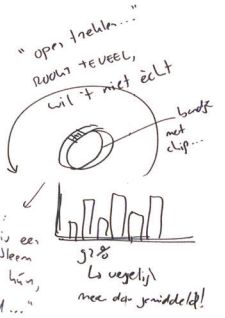 "open trekken..."
ROOKT TEVEEL,
wil 't niet ècht
bandje
met
chip...
is een
hún,
92%
↳ vergelijk
meer dan gemiddeld!